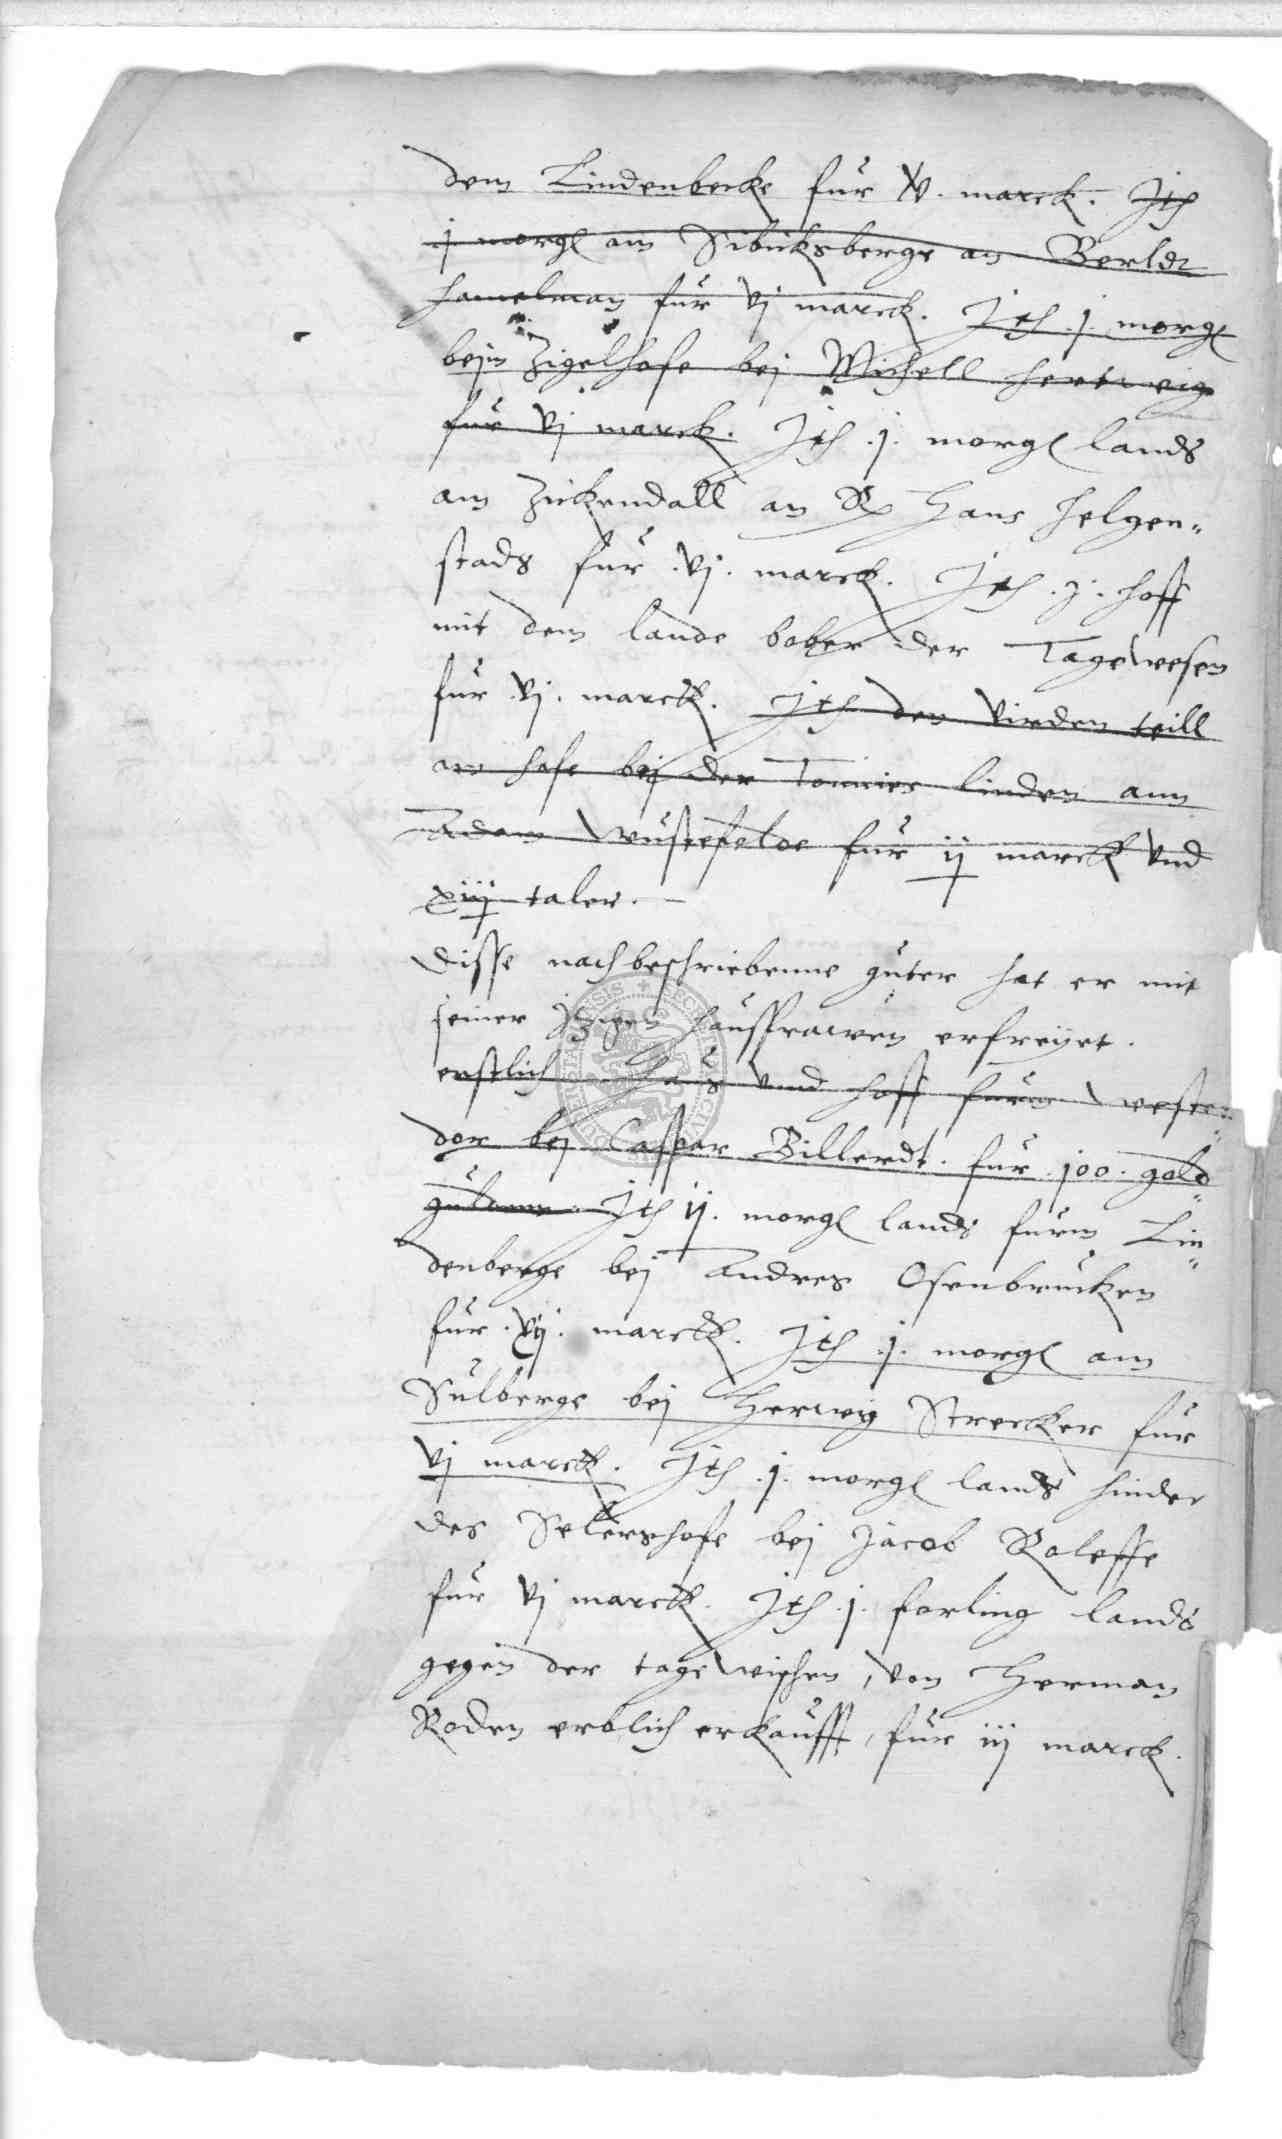 dem Lindenbecke fur xv. marck. Jth
j morgl am Sibicksberge an Berldt
hamelman fur vj marck. Jth .j. morgl
beim Zigelhofe bej Michell hertwig
fur vj marck. Jth .j. morgl lands
am Zickendall an Hans Helgen=
stads fur .vj. marck. Jth .j. hoff
mit dem lande bober der Tagewesen
fur .vj. marck. Jth den virden teill
am hofe bej der Tonnies linden ann
Adam Wustefelde fur ij marck vnd
xiij taler.
Disse nachbeschriebenne guter hat er mit
seiner Jtzigen hausfrawen erfreyet.
erstlich haus vnnd hoff furm Weste=
dor bej Caspar Billerdt. fur .100. gold
gulden. Jth ij. morgl lands furm Lin=
denberge bej Andres Osenbrucken
fur .xij. marck. Jth .j. morgl am
Sulberge bej Herwig Strecker fur
vj marck. Jth .j. morgl lands hinder
des Selershofe bej Jacob Roleffe
fur vj marck. Jth .j. forling lands
gegen der tage wischen, von Herman
Roden erblich erkaufft, fur iij marck.